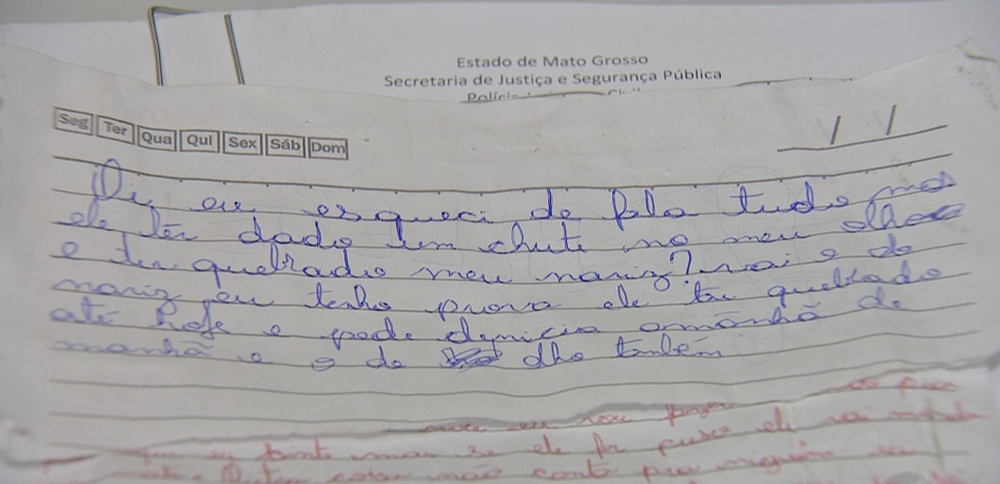 Estado de Mato Grosso
Secretaria de Justiça e Segurança Pública
Seg Ter Qua Qui Sex Sáb Dom
/ /
Oi eu esqueci de fala tudo mas
ele ter dado um chute no meu olho
e ter quebradio meu nariz? vai o do
nariz eu tenho prova ele ter quebrado
até hoje e pode denúcia amanhã de
manhã e o do olho tanbém
eu vou
mas se ele for preso ele vai
não conto pra niguém